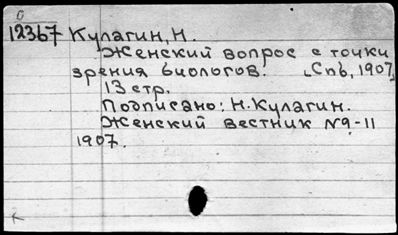 12367 Кулагин, Н.
Женский вопрос с точки
зрения биологов. [Спб, 1907]
13 стр.
Подписано: Н. Кулагин.
Женский вестник №9-11
1907.